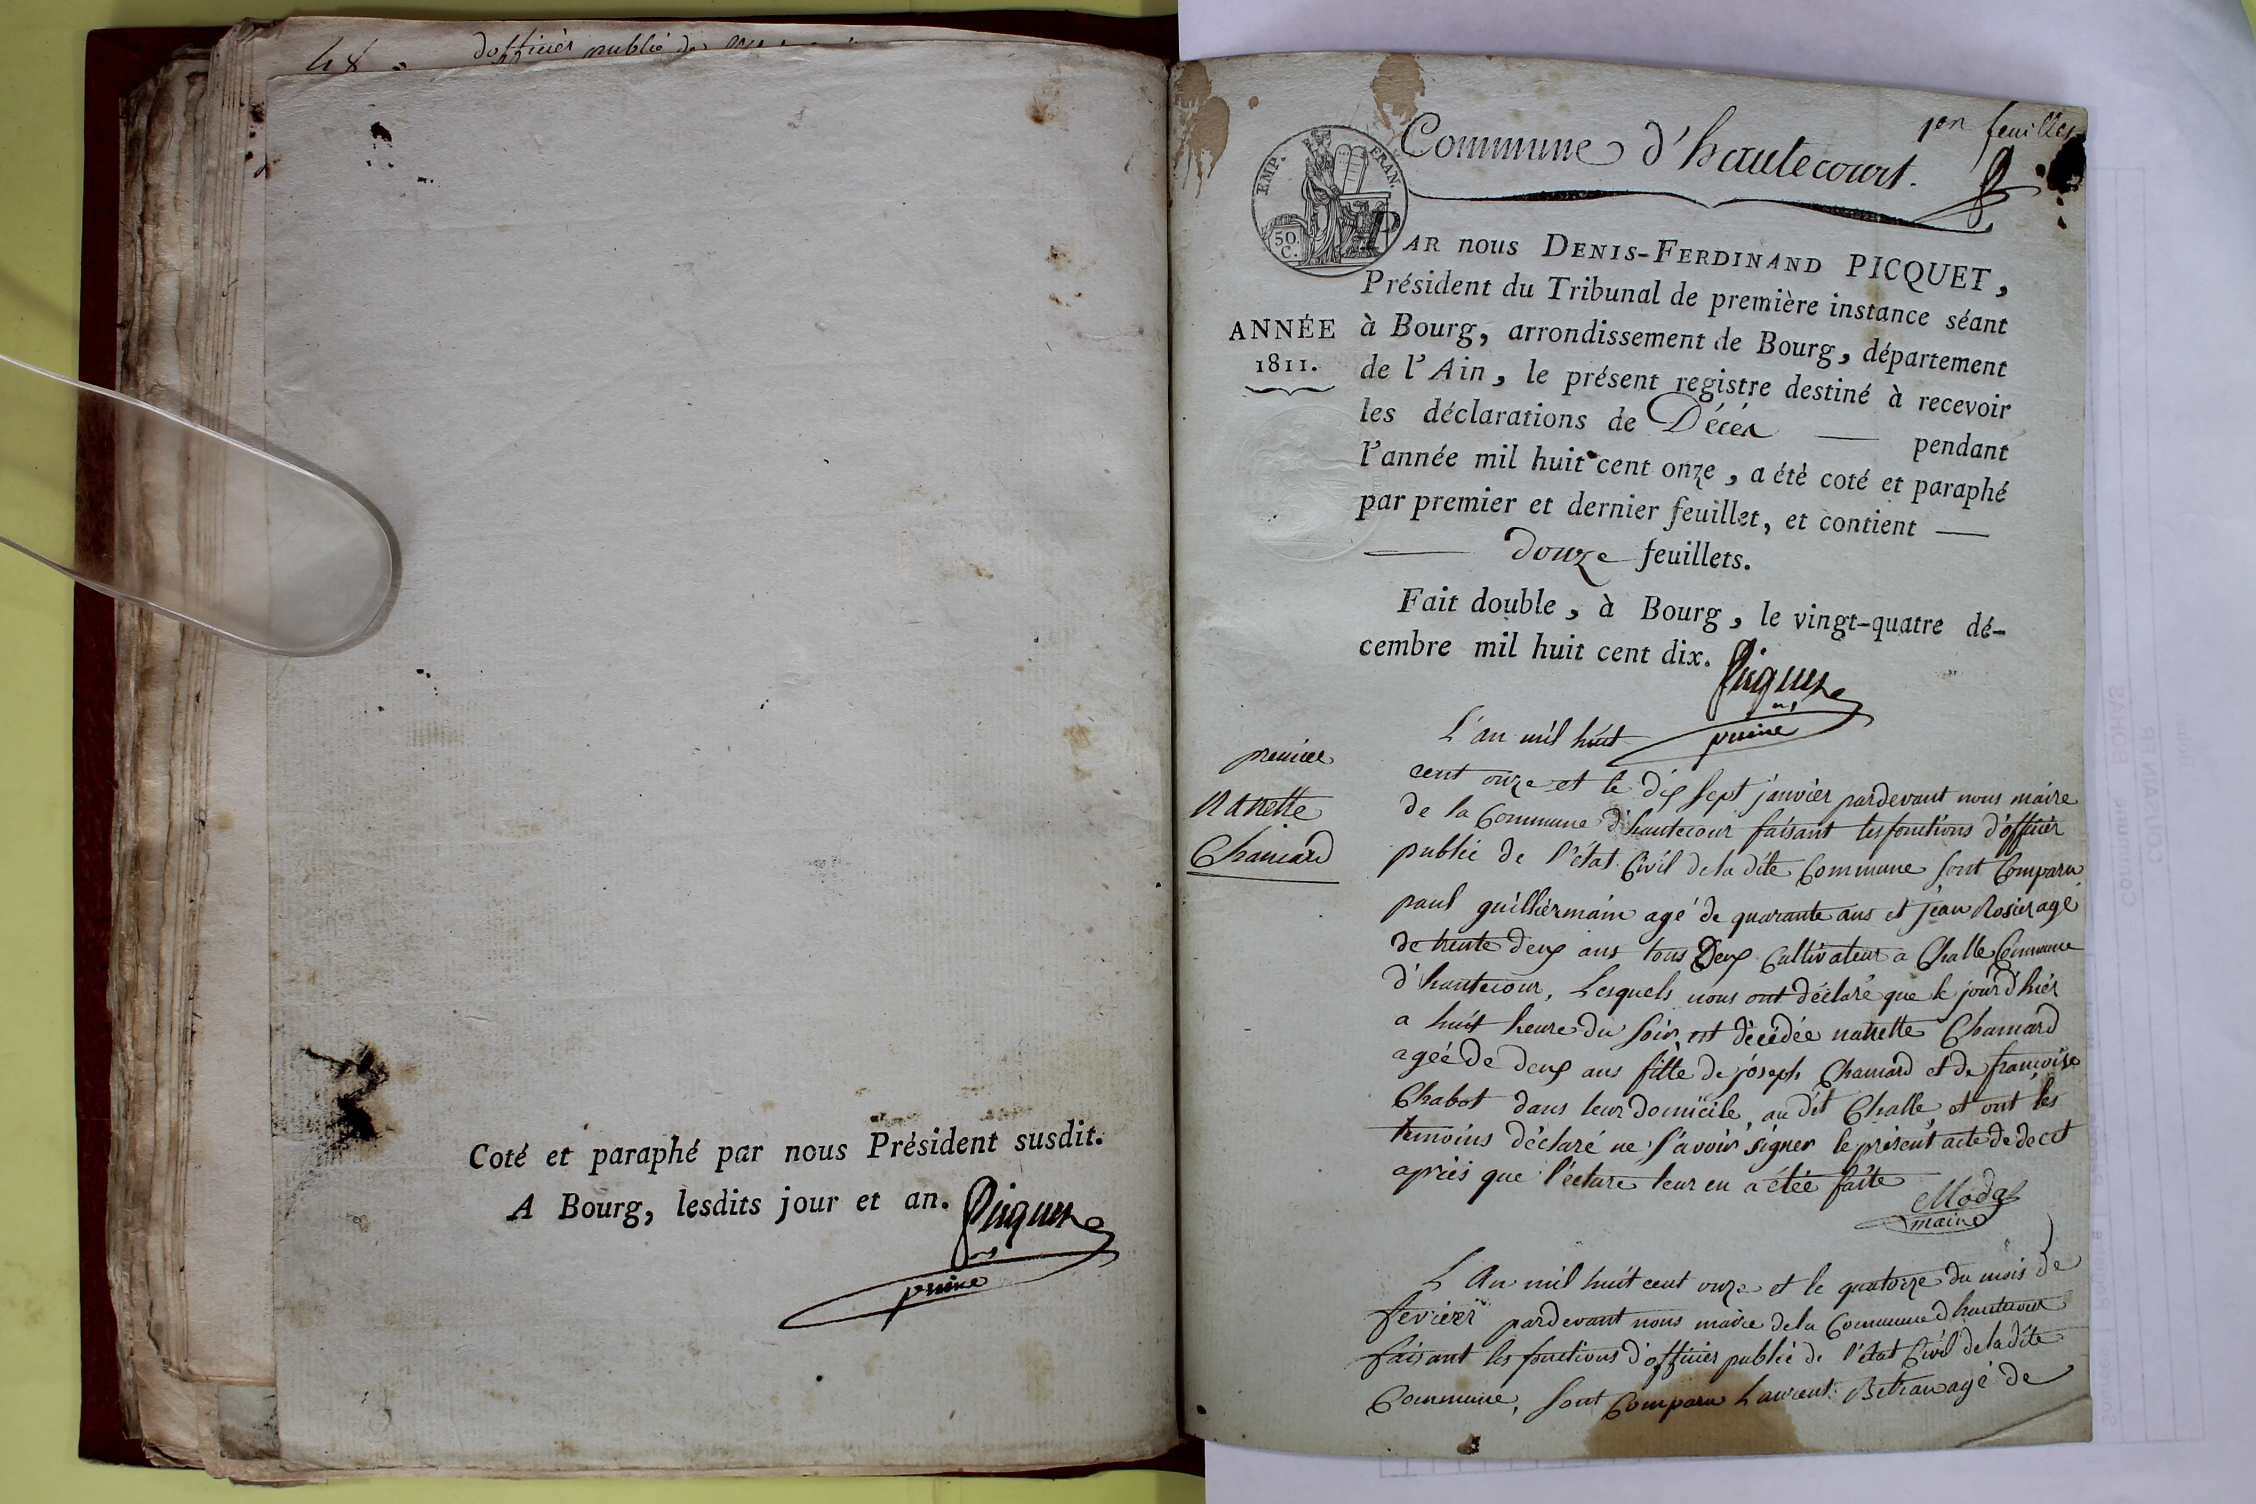 48
d'officier publié de
Coté et paraphé par nous Président susdit.
A Bourg, lesdits jour et an.
Picquet
1er feuillet
Commune d'hautecourt.
EMP. FRAN.
50 C.
PAR nous DENIS-FERDINAND PICQUET,
Président du Tribunal de première instance séant
ANNÉE
1811.
à Bourg, arrondissement de Bourg, département
de l'Ain, le présent registre destiné à recevoir
les déclarations de Décès — pendant
l'année mil huit cent onze, a été coté et paraphé
par premier et dernier feuillet, et contient —
— douze feuillets.
Fait double, à Bourg, le vingt-quatre dé-
cembre mil huit cent dix.
Picquet
premier
Nanette
Chanard
L'an mil huit
cent onze et le dix sept janvier pardevant nous maire
de la Commune d'hautecour faisant les fonctions d'officier
publié de l'état Civil de la dite Commune sont Comparu
paul guilliermain agé de quarante ans et jean Rosier agé
de trente deux ans tous Deux Cultivateur a Challe Commune
d'hautecour, Lesquels nous ont déclaré que le jour d'hier
a huit heure du soir est décédée nanette Chanard
agée de deux ans fille de joseph Chanard et de françoise
Chabot dans leur domicile au dit Challe et ont les
temoins déclaré ne s'avoir signer le présent acte de
après que l'ecture leur en a étée faite
maire
L'An mil huit cent onze et le quatorze du mois de
fevrier pardevant nous maire de la Commune d'hautecour
faisant les fonctions d'officier publié de l'état Civil de la dite
Commune, sont Comparu Laurent agé de